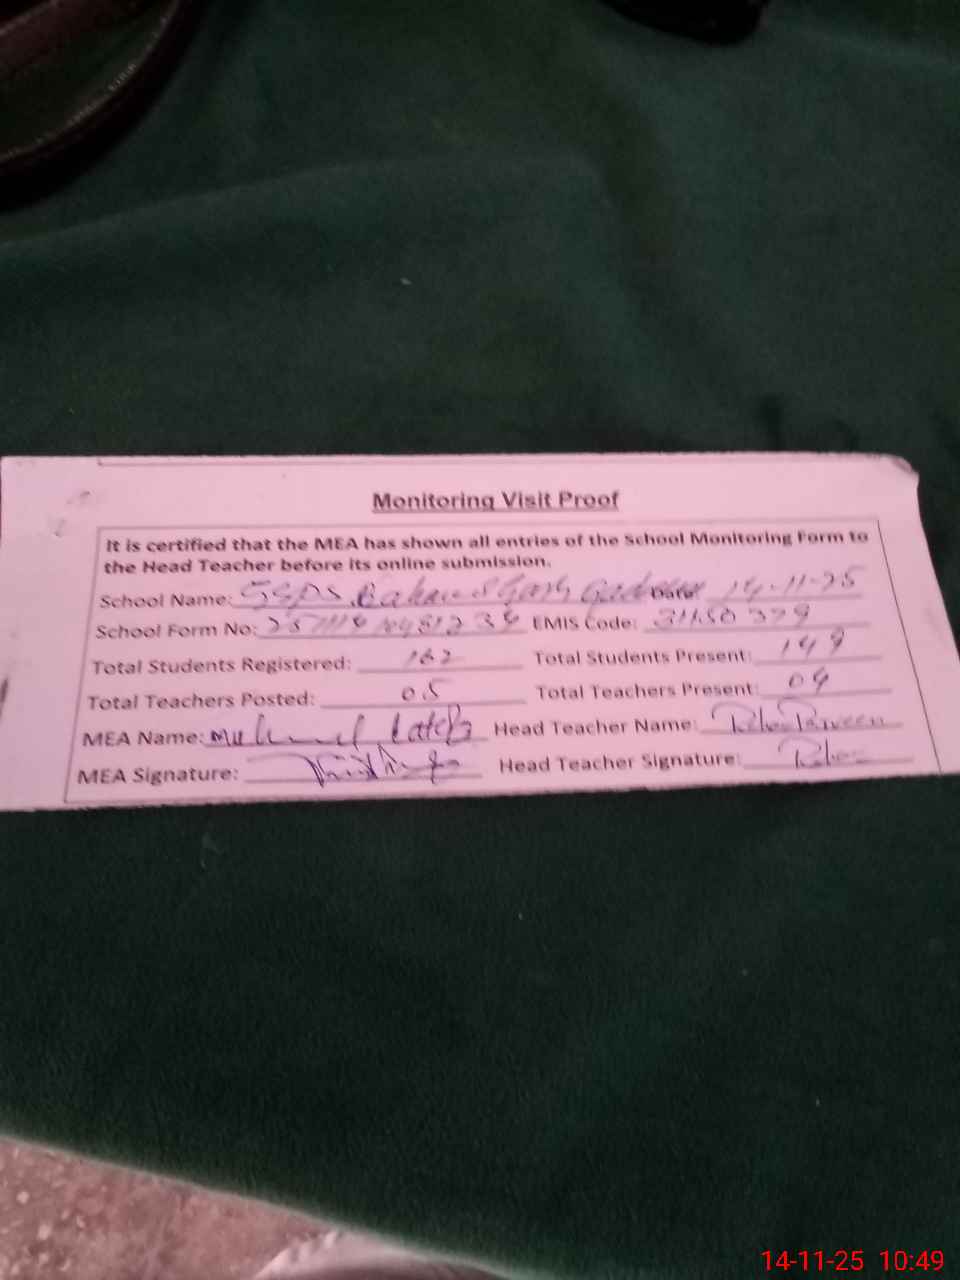 Monitoring Visit Proof
It is certified that the MEA has shown all entries of the School Monitoring Form to
the Head Teacher before its online submission.
School Name: Date: 14-11-25
School Form No: EMIS Code: 31150379
Total Students Registered: 162 Total Students Present: 149
Total Teachers Posted: 05 Total Teachers Present: 04
MEA Name: Head Teacher Name: Parveen
MEA Signature: Head Teacher Signature:
14-11-25 10:49